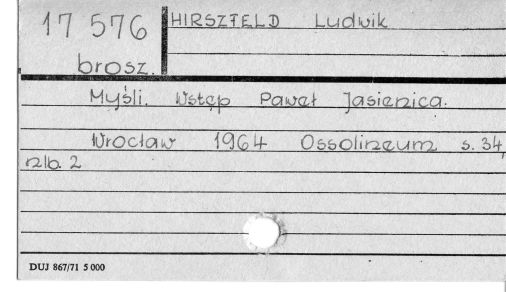 17 576 HIRSZFELD Ludwik
brosz.
Myśli. Wstęp Paweł Jasienica.
Wrocław 1964 Ossolineum s. 34,
nlb. 2
DUJ 867/71 5 000